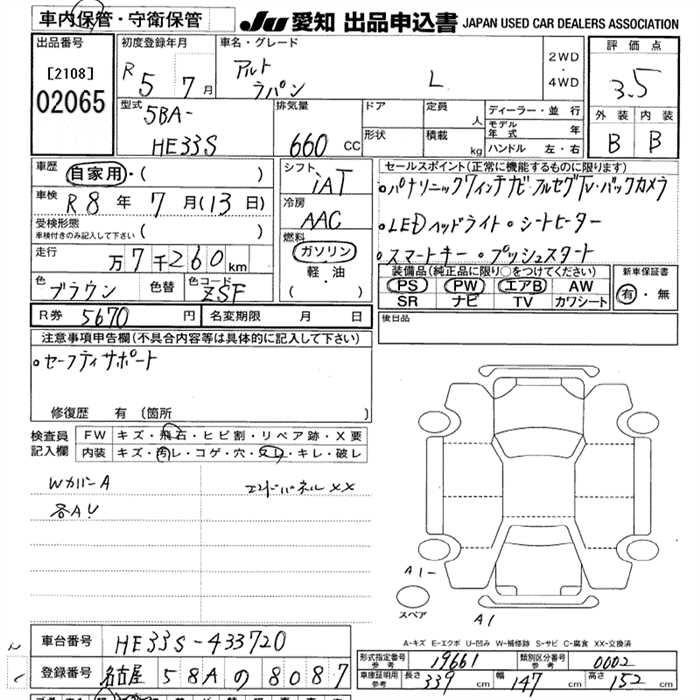 車内保管・守衛保管 JU 愛知 出品申込書 JAPAN USED CAR DEALERS ASSOCIATION
出品番号 [2108] 02065
初度登録年月 R 5 7月
車名・グレード アルト ラパン L
2WD・4WD
評価点 3.5
外装 内装
B B
型式 5BA-HE33S
排気量 660 CC
ドア 定員 人
形状 積載 kg
ディーラー・並行
モデル年式 年
ハンドル 左・右
車歴 自家用・( )
車検 R8年7月(13日)
受検形態 ( )
車検付きのみ記入して下さい
走行 万7千260km
色 ブラウン 色替 色コード ZSF
シフト iAT
冷房 AAC
燃料 ガソリン 軽・油 ( ・ )
セールスポイント(正常に機能するものに限ります)
•パナソニック7インチナビ・フルセグTV・バックカメラ
•LEDヘッドライト・シートヒーター
•スマートキー・プッシュスタート
装備品(純正品に限り○をつけてください)
PS PW エアB AW
SR ナビ TV カワシート
新車保証書 有・無
R券 5670 円 名変期限 月 日
検日品
注意事項申告欄(不具合内容等は具体的に記入して下さい)
•セーフティサポート
修復歴 有 (箇所 )
検査員記入欄
FW キズ・飛石・ヒビ割・リペア跡・X要
内装 キズ・汚レ・コゲ・穴・スレ・キレ・破レ
WカバーA エンドパネルXX
各AU
A1-
スペア
A1
A-キズ E-エクボ U-凹み W-補修跡 S-サビ C-腐食 XX-交換済
車台番号 HE33S-433720
登録番号 名古屋 58Aの8087
形式指定番号 参考 19661 類別区分番号 参考 0002
車庫証明用 参考 長さ 339 cm 幅 147 cm 高さ 152 cm